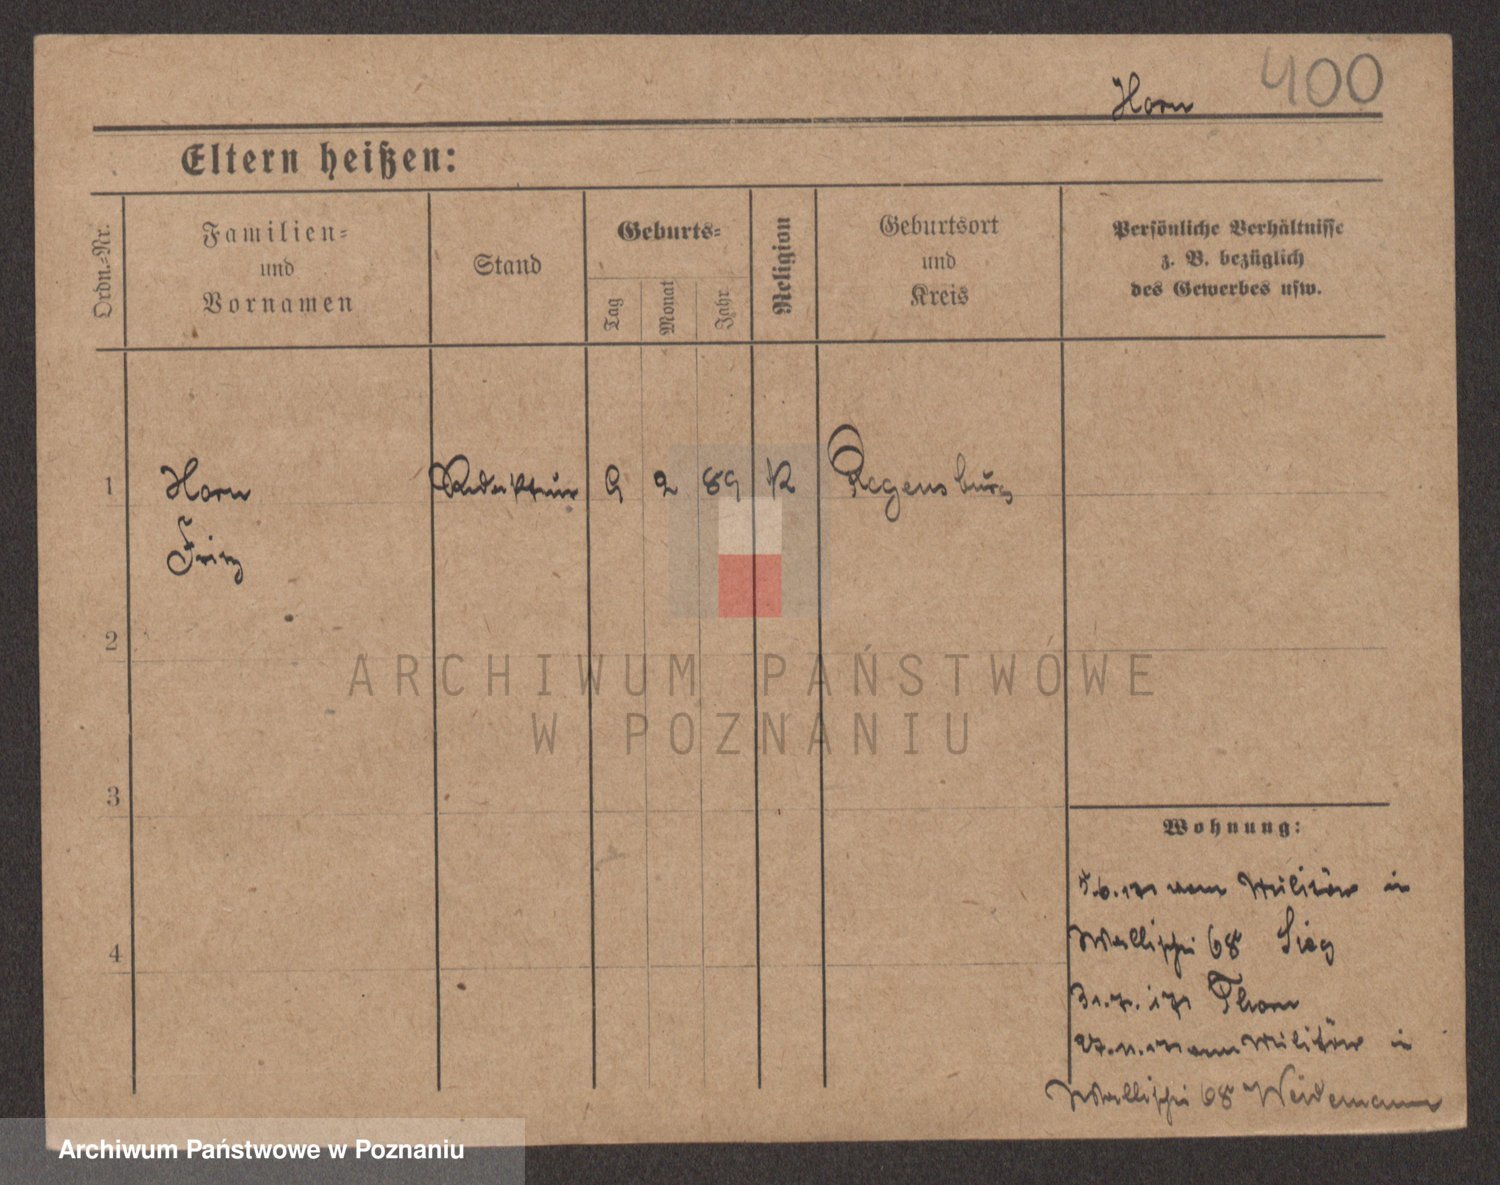 Horn 400
Eltern heißen:
Ordn.-Nr.
Familien-
und
Vornamen
Stand
Geburts-
Tag
Monat
Jahr
Religion
Geburtsort
und
Kreis
Persönliche Verhältnisse
z. B. bezüglich
des Gewerbes usw.
1 Horn Redakteur 9 2 89 K Regensburg
Fritz
2
ARCHIWUM PAŃSTWOWE
W POZNANIU
3
Wohnung:
5.6.17 vom Militär in
Wallischei 68 Sieg
4
31.7.17 Thorn
27.11.17 vom Militär in
Wallischei 68 Weidemann
Archiwum Państwowe w Poznaniu